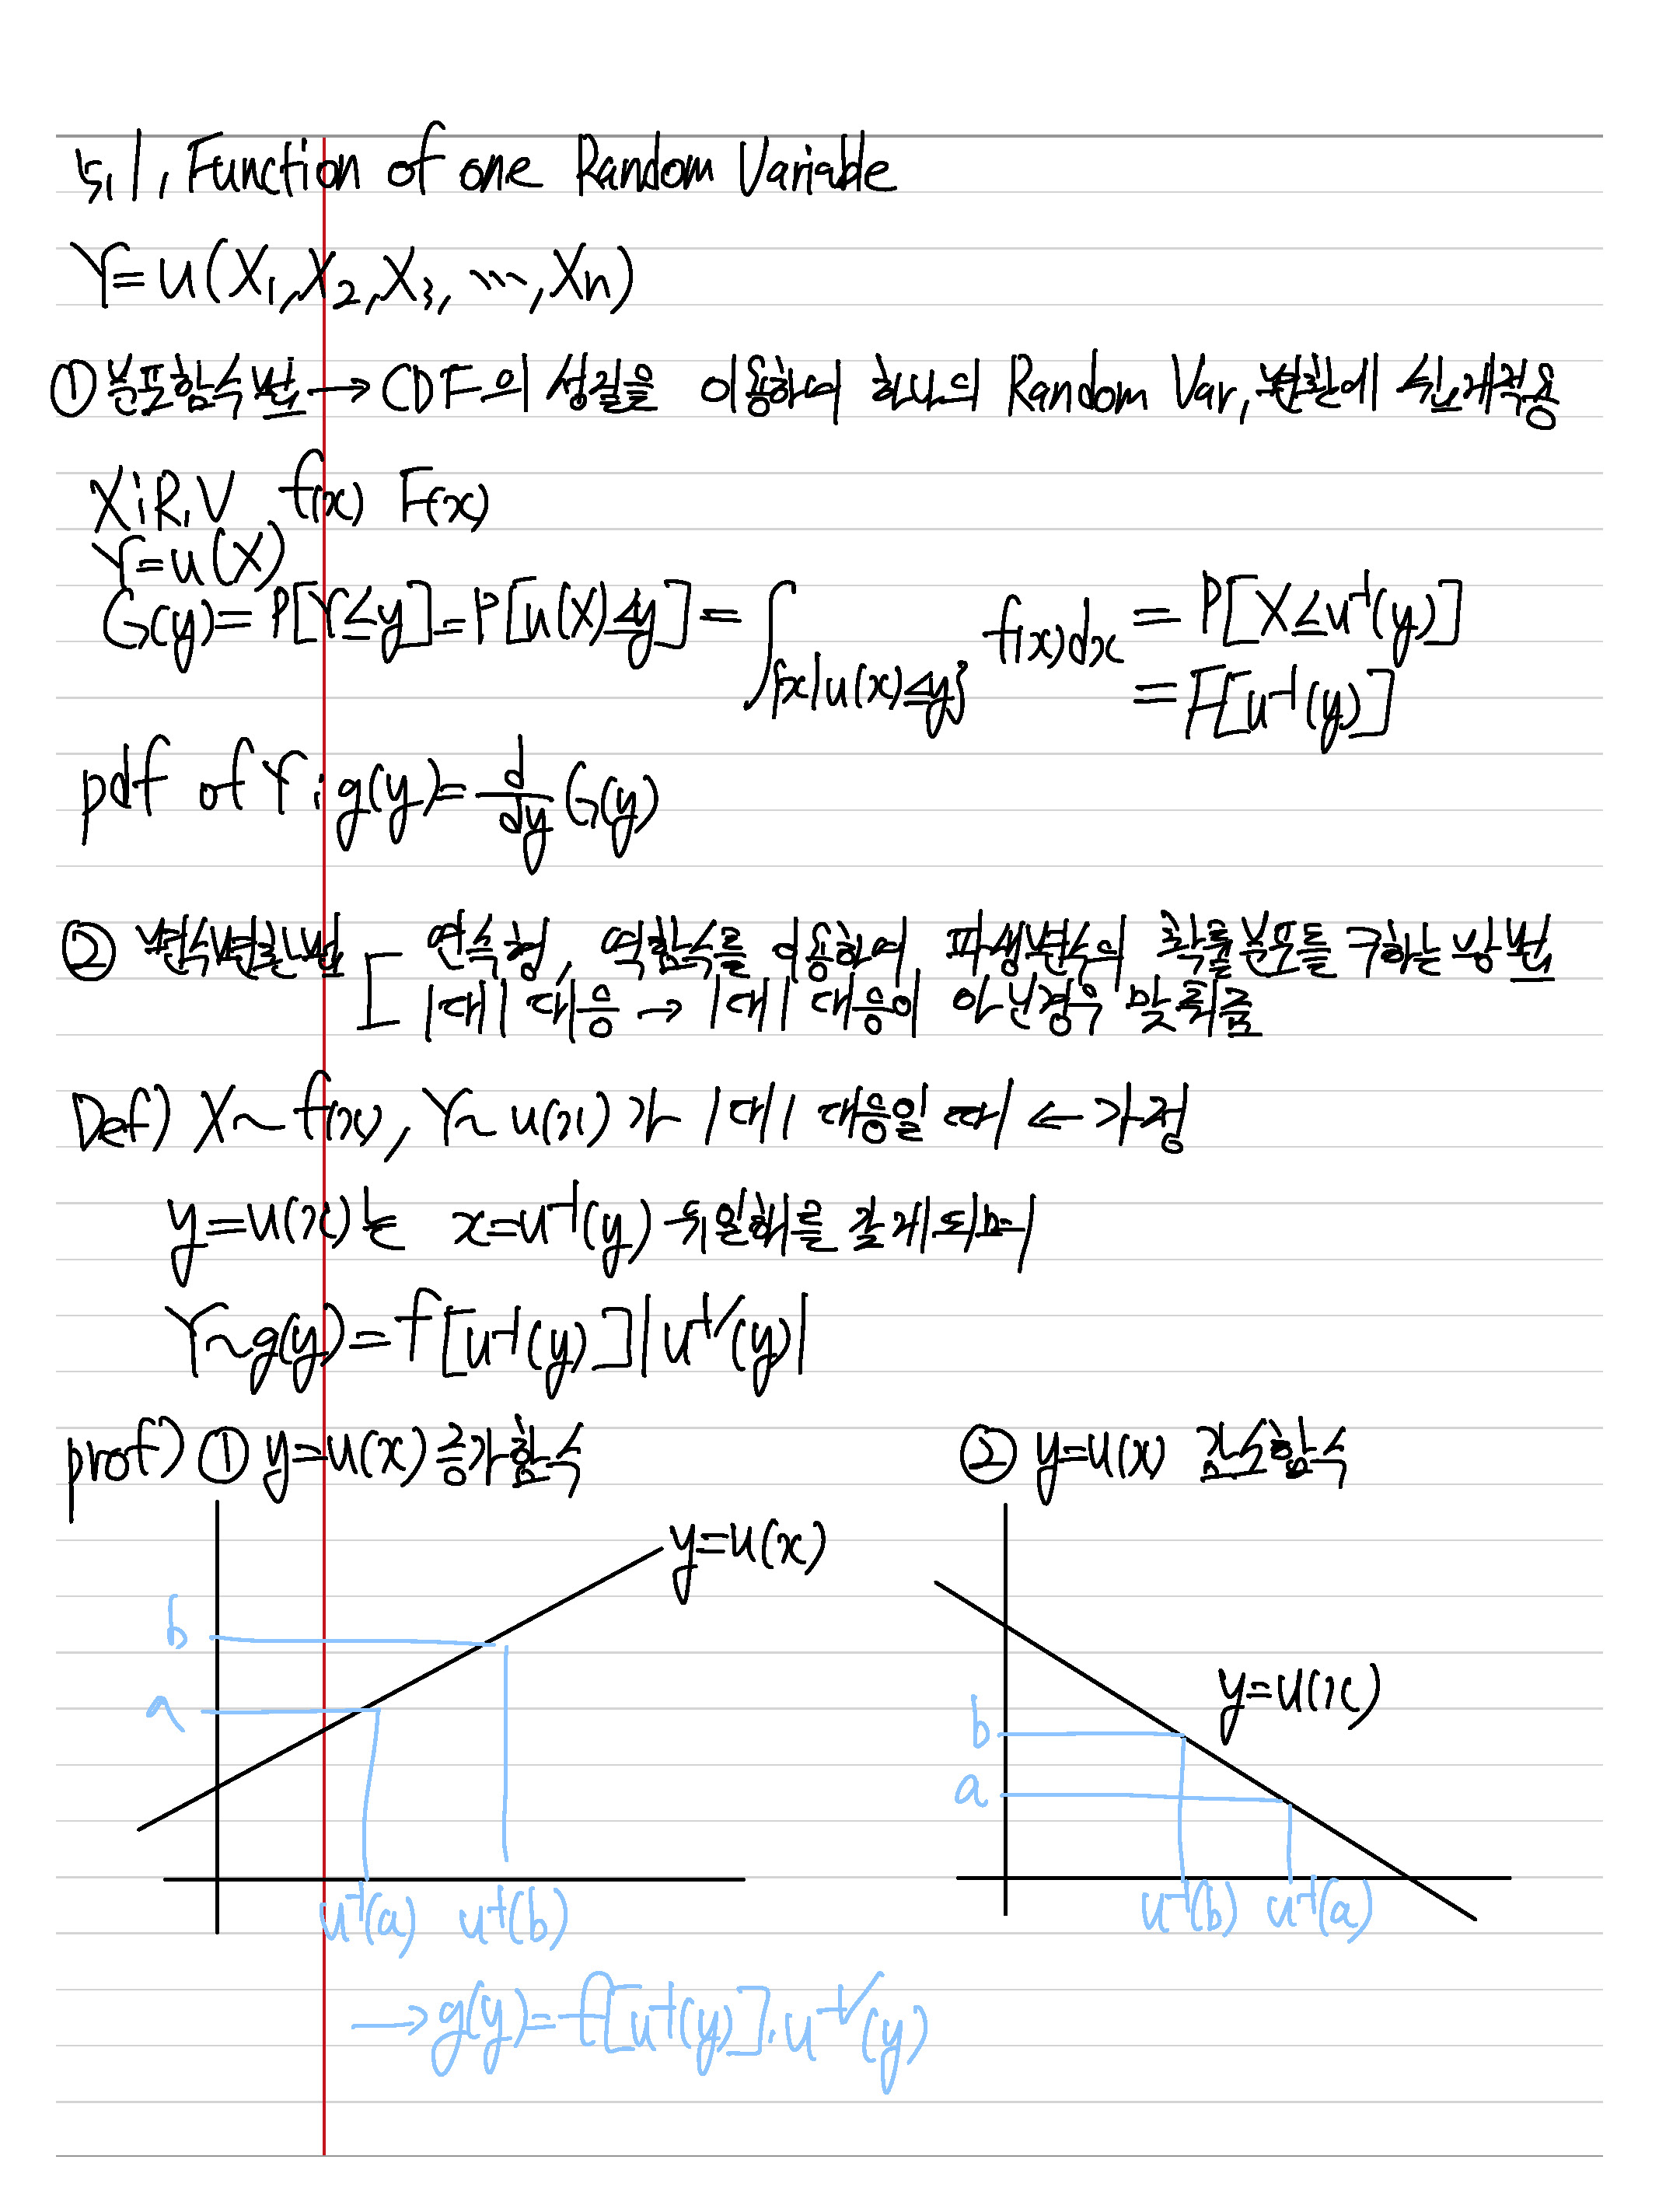 5.1. Function of one Random Variable
Y=u(X₁,X₂,X₃,⋯,Xn)
① 분포함수법 → CDF의 성질을 이용하여 하나의 Random Var, 변환에 쉽게적용
X:R.V f(x) F(x)
Y=u(X)
G(y)=P[Y≤y]=P[u(X)≤y]=∫{x|u(x)≤y} f(x)dx = P[X≤u⁻¹(y)]
=F[u⁻¹(y)]
pdf of Y : g(y)=d/dy G(y)
② 변수변환법 [ 연속형, 역함수를 이용하여 파생변수의 확률분포를 구하는 방법
1대1 대응 → 1대1 대응이 아닌경우 맞춰줌
Def) X~f(x), Y~u(x)가 1대1 대응일 때 ← 가정
y=u(x)는 x=u⁻¹(y) 유일해를 갖게되며
Y~g(y)=f[u⁻¹(y)]|u⁻¹′(y)|
prof) ① y=u(x) 증가함수 ② y=u(x) 감소함수
y=u(x)
b
a
u⁻¹(a) u⁻¹(b)
y=u(x)
b
a
u⁻¹(b) u⁻¹(a)
→ g(y)=f[u⁻¹(y)].u⁻¹′(y)